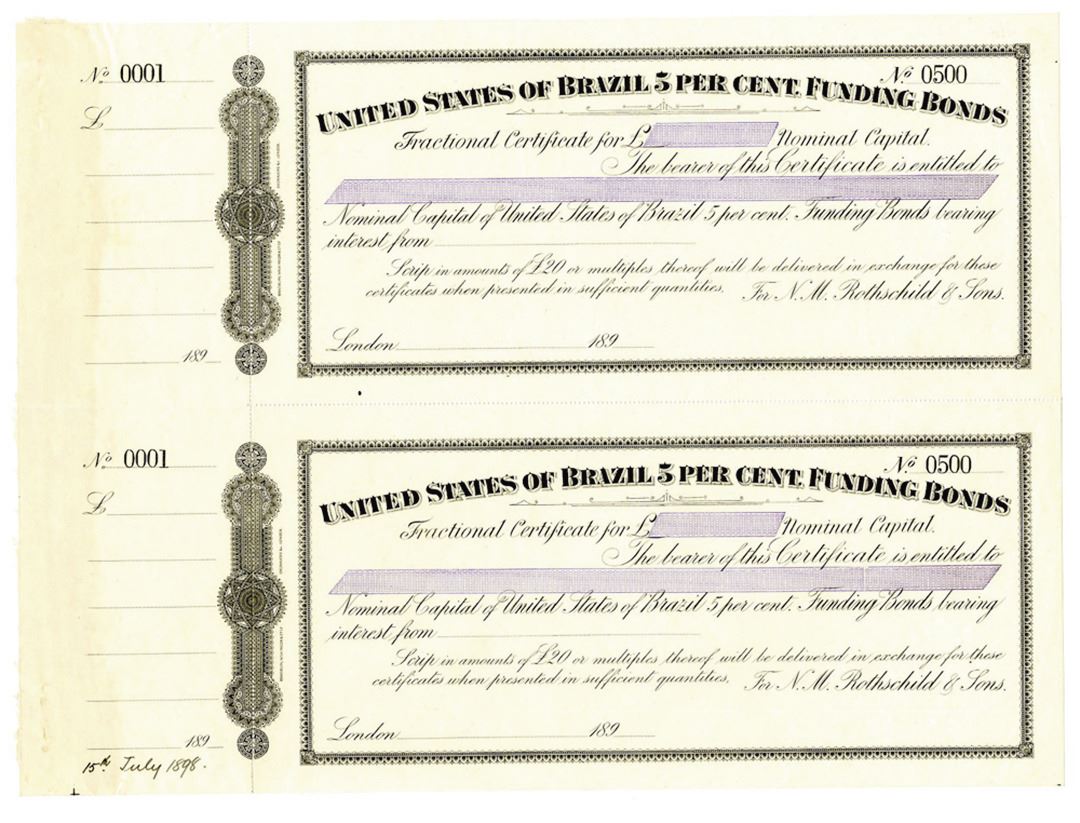 No. 0001
£
189
No. 0500
UNITED STATES OF BRAZIL 5 PER CENT. FUNDING BONDS
Fractional Certificate for £ Nominal Capital.
The bearer of this Certificate is entitled to
Nominal Capital of United States of Brazil 5 per cent. Funding Bonds bearing
interest from
Scrip in amounts of £20 or multiples thereof will be delivered in exchange for these
certificates when presented in sufficient quantities. For N. M. Rothschild & Sons.
London 189
No. 0001
£
189
15th July 1898.
No. 0500
UNITED STATES OF BRAZIL 5 PER CENT. FUNDING BONDS
Fractional Certificate for £ Nominal Capital.
The bearer of this Certificate is entitled to
Nominal Capital of United States of Brazil 5 per cent. Funding Bonds bearing
interest from
Scrip in amounts of £20 or multiples thereof will be delivered in exchange for these
certificates when presented in sufficient quantities. For N. M. Rothschild & Sons.
London 189